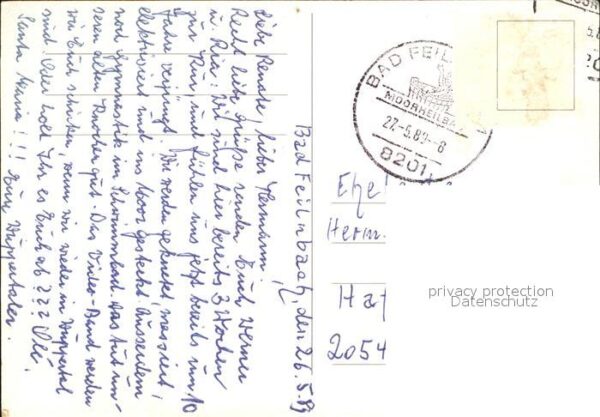 Bad Feilnbach, den 26.5.89
Liebe Renate, lieber Hermann,
Recht liebe Grüße senden Euch Werner
u. Ria. Wir sind hier bereits 3 Wochen
zur Kur, und fühlen uns jetzt bereits um 10
Jahre verjüngt. Wir werden geknetet, massiert,
elektrisiert und ins Moor gesteckt. Ausserdem
noch Gymnastik im Schwimmbad. Das tut un-
seren alten Knochen gut. Das Video-Band werden
wir Euch schicken, wenn wir wieder in Wuppertal
sind. Oder holt Ihr es Euch ab ??? Olé!
Santa Maria !!! Eure Wuppertaler.
BAD FEIL
MOORHEILBA
27.-5.89.-8
8201
5.8
20
Ehe
Herm.
Ha
2054
privacy protection
Datenschutz